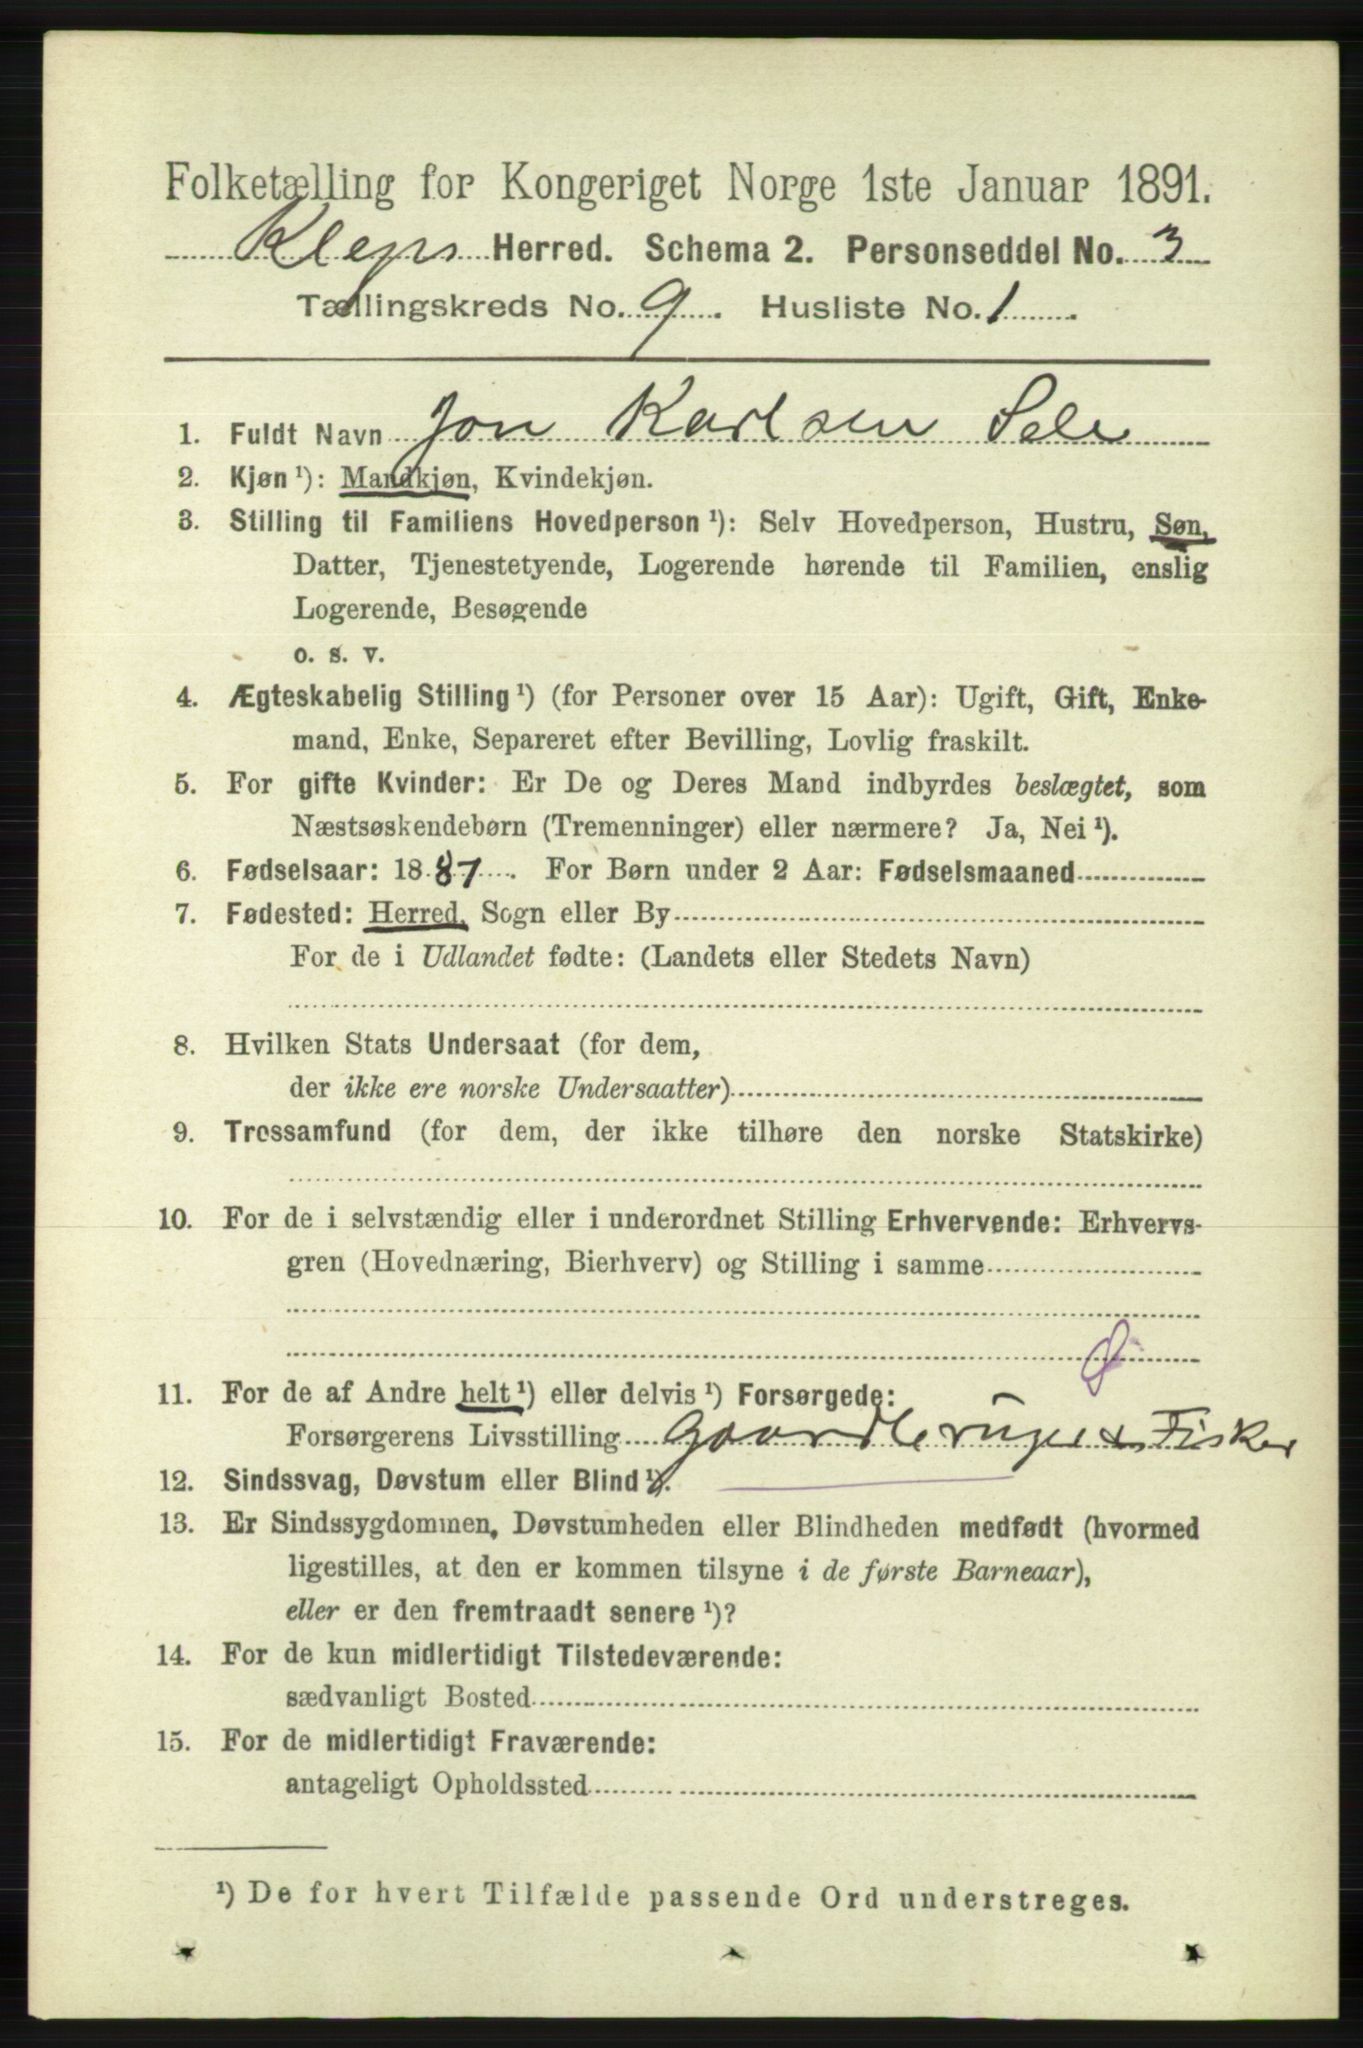 Folketælling for Kongeriget Norge 1ste Januar 1891.
Klepp Herred. Schema 2. Personseddel No. 3
Tællingskreds No. 9. Husliste No. 1.
1. Fuldt Navn Jon Karlsen Sele
2. Kjøn ¹): Mandkjøn, Kvindekjøn.
3. Stilling til Familiens Hovedperson ¹): Selv Hovedperson, Hustru, Søn,
Datter, Tjenestetyende, Logerende hørende til Familien, enslig
Logerende, Besøgende
o. s. v.
4. Ægteskabelig Stilling ¹) (for Personer over 15 Aar): Ugift, Gift, Enke-
mand, Enke, Separeret efter Bevilling, Lovlig fraskilt.
5. For gifte Kvinder: Er De og Deres Mand indbyrdes beslægtet, som
Næstsøskendebørn (Tremenninger) eller nærmere? Ja, Nei ¹).
6. Fødselsaar: 1887. For Børn under 2 Aar: Fødselsmaaned
7. Fødested: Herred, Sogn eller By
For de i Udlandet fødte: (Landets eller Stedets Navn)
8. Hvilken Stats Undersaat (for dem,
der ikke ere norske Undersaatter)
9. Trossamfund (for dem, der ikke tilhøre den norske Statskirke)
10. For de i selvstændig eller i underordnet Stilling Erhvervende: Erhvervs-
gren (Hovednæring, Bierhverv) og Stilling i samme
Ø
11. For de af Andre helt ¹) eller delvis ¹) Forsørgede:
Forsørgerens Livsstilling Gaardbruger & Fisker
12. Sindssvag, Døvstum eller Blind ¹).
13. Er Sindssygdommen, Døvstumheden eller Blindheden medfødt (hvormed
ligestilles, at den er kommen tilsyne i de første Barneaar),
eller er den fremtraadt senere ¹)?
14. For de kun midlertidigt Tilstedeværende:
sædvanligt Bosted
15. For de midlertidigt Fraværende:
antageligt Opholdssted
¹) De for hvert Tilfælde passende Ord understreges.